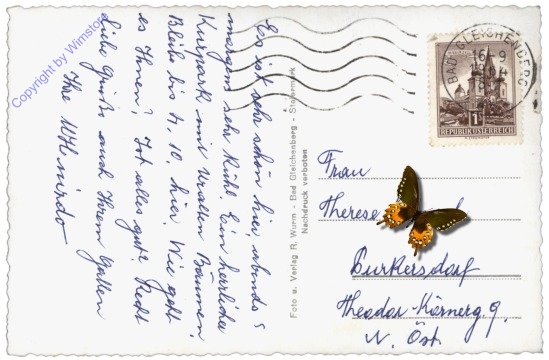 Es ist sehr schön hier, abends &
morgens sehr kühl. Ein herrlicher
Kurpark mit uralten Bäumen.
Bleibe bis 4. 10. hier. Wie geht
es Ihnen? Ist alles gut? Recht
liebe Grüße auch Ihrem Gatten
Ihre
Copyright by Wimstore
Foto u. Verlag R. Wurm - Bad Gleichenberg - Steiermark
Nachdruck verboten
BAD GLEICHENBERG
REPUBLIK ÖSTERREICH
1
Frau
Therese
Purkersdorf
Theodor-Körnerg. 9.
N. Öst.